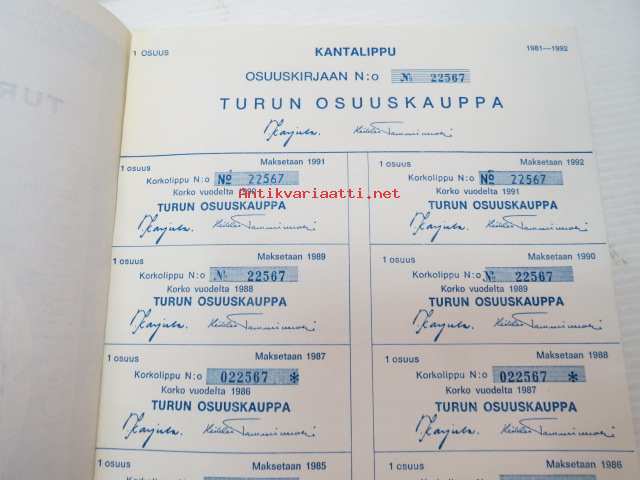 1 OSUUS KANTALIPPU 1981—1992
OSUUSKIRJAAN N:o № 22567
TURUN OSUUSKAUPPA
TUR
1 osuus Maksetaan 1991
Korkolippu N:o № 22567
Korko vuodelta 1990
TURUN OSUUSKAUPPA
1 osuus Maksetaan 1992
Korkolippu N:o № 22567
Korko vuodelta 1991
TURUN OSUUSKAUPPA
Antikvariaatti.net
1 osuus Maksetaan 1989
Korkolippu N:o № 22567
Korko vuodelta 1988
TURUN OSUUSKAUPPA
1 osuus Maksetaan 1990
Korkolippu N:o № 22567
Korko vuodelta 1989
TURUN OSUUSKAUPPA
1 osuus Maksetaan 1987
Korkolippu N:o 022567 *
Korko vuodelta 1986
TURUN OSUUSKAUPPA
1 osuus Maksetaan 1988
Korkolippu N:o 022567 *
Korko vuodelta 1987
TURUN OSUUSKAUPPA
1 osuus Maksetaan 1985
1 osuus Maksetaan 1986